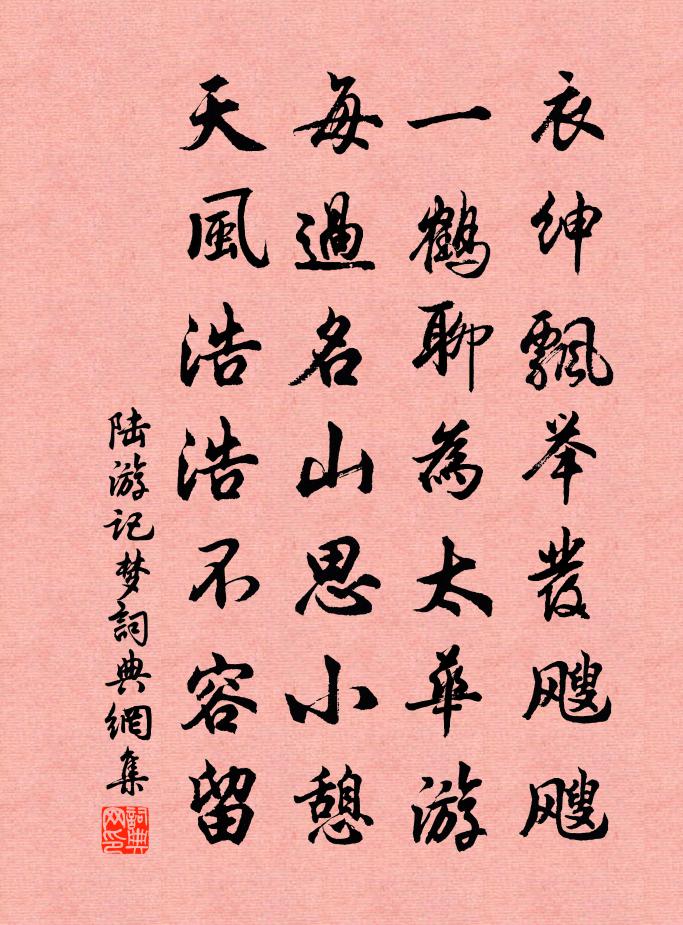 衣紳飄举發颼颼
一鶴聊為太華游
每過名山思小憩
天風浩浩不容留
陆游记梦詞典網集
詞典网印